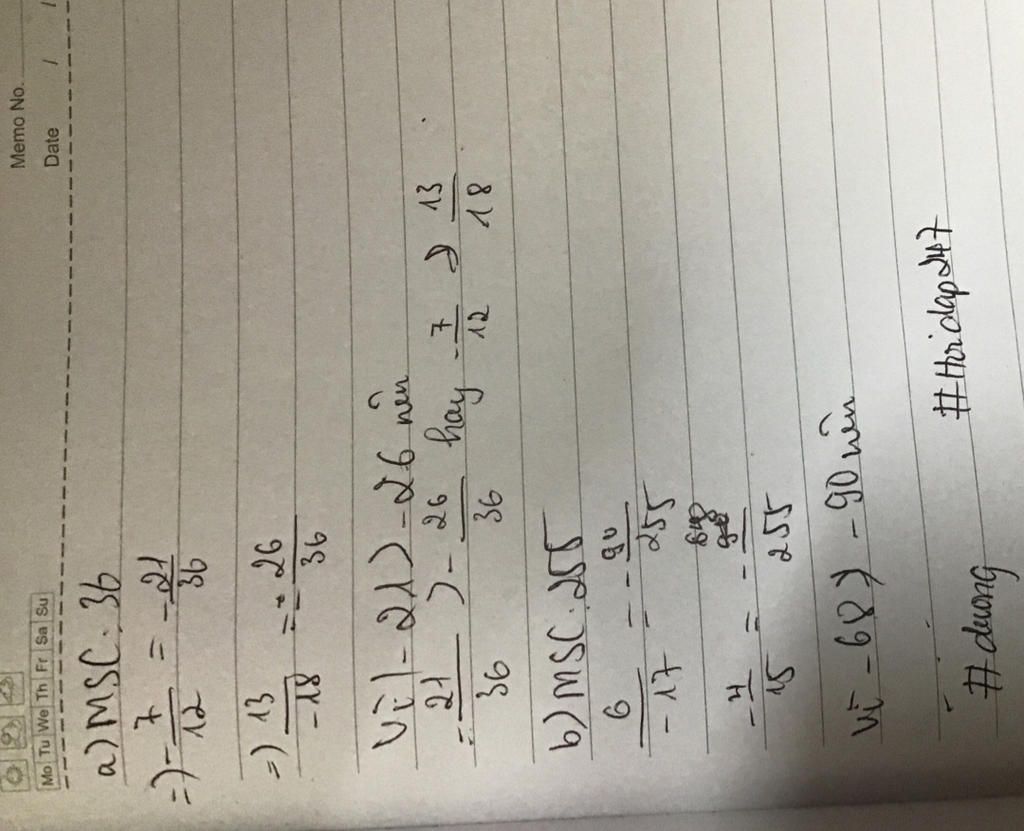 Memo No.
Mo Tu We Th Fr Sa Su
Date / /
a) MSC: 36
=) -7/12 = -21/36
=) 13/-18 = -26/36
Vì -21 > -26 nên
-21/36 > -26/36 hay -7/12 > 13/18
b) MSC: 255
6/-17 = -90/255
-4/15 = -68/255
Vì -68 > -90 nên
#duong #Hoidap247